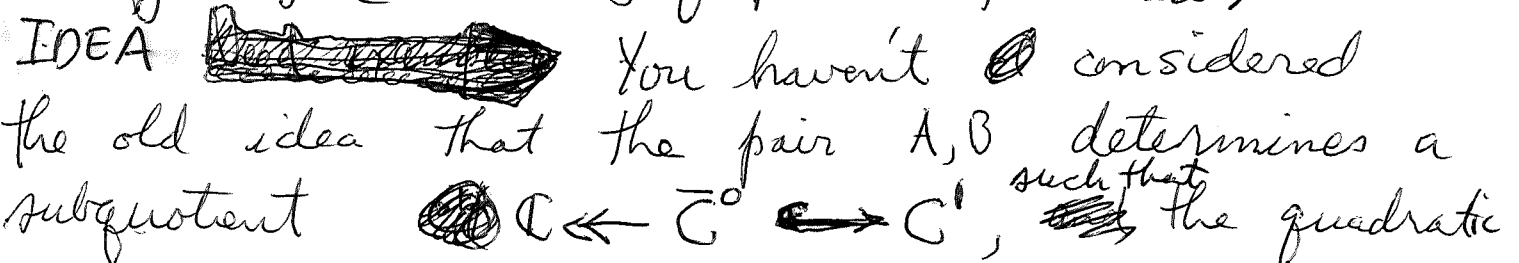 IDEA You haven't considered
the old idea that the pair A, B determines a
subquotient ℂ ↞ C̄⁰ ↪ C¹, such that the quadratic